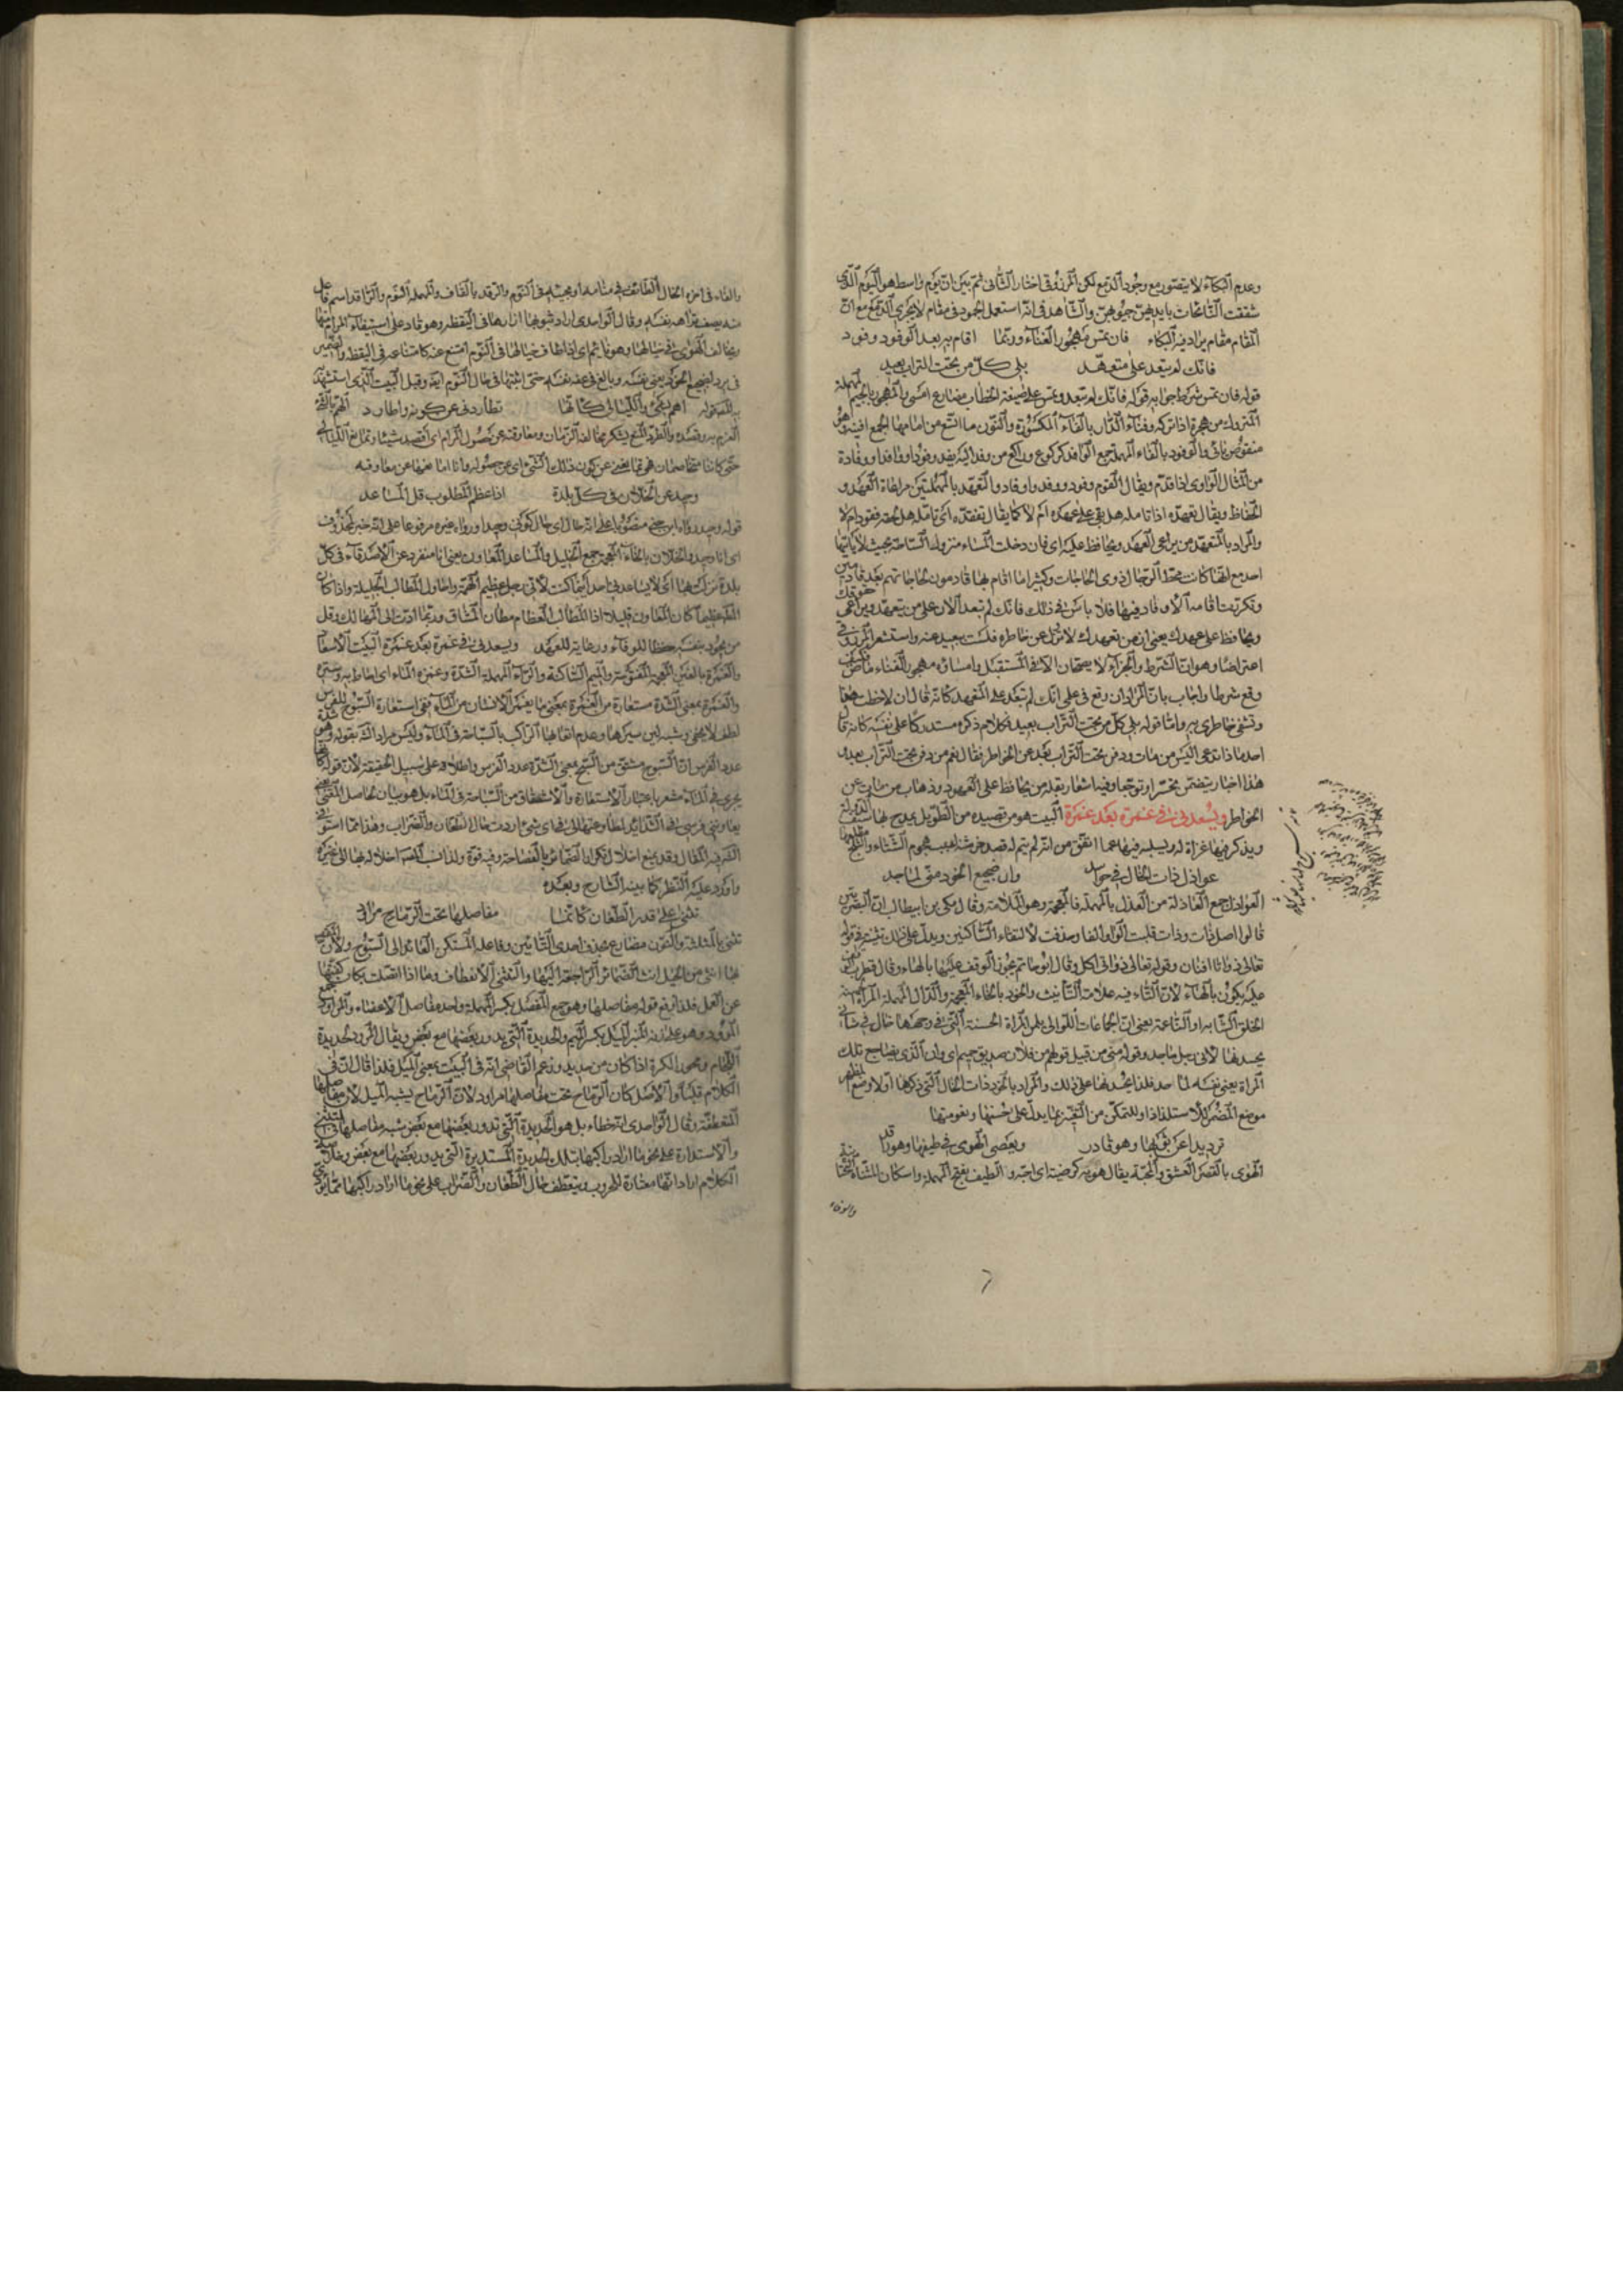 وعدم البكاء لا يتصور مع وجود الدمع لكن المرزوقي اختار الثاني ثم بين ان يوم واسط هو اليوم الذي
شققت النائحات بايديهن جيوبهن والشاهد في انه استعمل الجمود في مقام لا يجري الدمع مع ان
المقام مقام يراد فيه البكاء فان تمس مهجور الفناء وربما اقام به بعد الوفود وفود
فانك لم تبعد على متعهد بلى كل من تحت التراب بعيد
قوله فان تمس شرط جوابه قوله فانك لم تبعد وتمس على صيغة الخطاب مضارع امسى والمهجور بالجيم
المتروك من هجره اذا تركه وفناء الدار بالفاء المكسورة والنون ما اتسع من امامها الجمع افنية وهو
منقوص يائي والوفود بالفاء المهملة جمع الوافد كركوع وراكع من وفد اليه يفد وفودا ووفدا ووفادة
من المثال الواوي اذا قدم ويقال القوم وفود ووفد واوفاد والتعهد بالمهملتين مراعاة العهد و
الحفاظ ويقال تعهده اذا تامله هل بقي على عهده ام لا كما يقال تفقده اي تامله هل هو مفقود ام لا
والمراد بالمتعهد من يراعي العهد ويحافظ عليه اي فان دخلت المساء منزوله الساحة بحيث لا ياتيها
احد مع انها كانت محط الرحال لذوي الحاجات وكثيرا ما اقام بها قادمون لحاجاتهم بعد قادمين
وتكررت اقامة الاوفاد فيها فلا باس في ذلك فانك لم تبعد الان على من يتعهد ويراعي حقوقك
ويحافظ على عهدك يعني ان من تعهدك لا تزل عن خاطره فلست ببعيد عنه واستشعر المرزوقي
اعتراضا وهو ان الشرط والجزاء لا يصحان الا في المستقبل وامساؤه مهجور الفناء ماض فكيف
وقع شرطا واجاب بان المراد ان وقع في علمي انك لم تبعد على المتعهد كانه قال ان لاحظت هذا
وتشفى خاطري به واما قوله بلى كل من تحت التراب بعيد فكلام ذكره مستدركا على نفسه كانه قال
احد ماذا تدعي اليس من مات ودفن تحت التراب بعد عن الخواطر فقال نعم من دفن تحت التراب بعيد
هذا اخبار يتضمن تحسرا وتوجعا وفيه اشعار بقلة من يحافظ على العهود وذهاب من مات عن
الخواطر وتسعدني في غمرة بعد غمرة البيت هو من قصيدة من الطويل يمدح بها سيف الدولة
ويذكر فيها غزاة له ويسليه فيها عما اتفق من انه لم يتم له قصد خرشنة بسبب هجوم الشتاء والثلج مطلعها
عواذل ذات الخال في حواسد وان ضجيع الخود مني لماجد
العواذل جمع العاذلة من العذل بالمهملة فالمعجمة وهو الملامة وقال مكي بن ابي طالب ان البصريين
قالوا اصل ذات وذات قلبت الواو الفا وحذفت لالتقاء الساكنين ويدل على ذلك تثنيته في قوله
تعالى ذواتا افنان وقوله تعالى ذواتي اكل وقال ابو حاتم يجوز الوقف عليها بالهاء وقال قطرب
عليه يكون بالهاء لان التاء فيه علامة التأنيث والخود بالخاء المعجمة والدال المهملة المرأة الحسنة
الخلق الشابة او الناعمة يعني ان الجماعات اللواتي يلمن المراة الحسنة التي في وجهها خال في شاني
يحسدنها لاني رجل ماجد وقوله مني من قبيل قولهم من فلان صديق حميم اي وان الذي يضاجع تلك
المراة يعني نفسه لماجد فلذا يحسدنها على ذلك والمراد بالخود ذات الخال التي ذكرها اولا وضع المظهر
موضع المضمر للاستلذاذ او للتمكن من التعبير بما يدل على حسنها ونعومتها
ترد يدا عن ثوبها وهو قادر ويعصي الهوى في طيفها وهو راقد
الهوى بالقصر العشق والمحبة يقال هويه كرضيه اي احبه والطيف بفتح المهملة واسكان المثناة التحتية
والفاء
والفاء في اخره الخال الطائف في منامه او مجيئه في النوم والرقد بالقاف والمهملة النوم والراقد اسم فاعل
منه يصف نزاهة نفسه وقال الواحدي اراد بثوبها ازارها في اليقظة وهو قادر على استيفاء المرام منها
ويخالف الهوى في خيالها وهو نائم اي اذا طاف خيالها في النوم امتنع عنه كامتناعه في اليقظة والضمير
في يرد لضجيع الخود يعني نفسه وبالغ في عفة نفسه حتى اثبتها في حال النوم ايضا وقبل البيت الذي استشهد
به قوله اهم بشيء والليالي كانها تطاردني عن كونه واطارد
العزم به وقصده والطرد المنع يشكو مخالفة الزمان ومفارقته عن حصول المرام اي اقصد شيئا وتمانع الليالي
حتى كاننا متخاصمان هي تمانعني عن كون ذلك الشيء اي عن حصوله وانا امانعها عن معاوقته
وحيد من الخلان في كل بلدة اذا عظم المطلوب قل المساعد
قوله وحيد رواه ابن جني منصوبا على انه حال اي حال كوني وحيدا ورواه غيره مرفوعا على انه خبر محذوف
اي انا وحيد والخلان بالخاء المعجمة جمع الخليل والمساعد المعاون يعني انا منفرد عن الاصدقاء في كل
بلدة نزلت بها اي لا يساعدني احد اينما كنت لاني رجل عظيم الهمة واحاول المطالب الجليلة واذا كان
المطلب عظيما كان المعاون قليلا اذ المطالب العظام مظان المشاق وربما ادت الى المهالك وقل
من يجود بنفسه حفظا للوفاء ورعاية للعهد ويسعدني في غمرة بعد غمرة البيت الاسعاد
والغمرة بالغين المعجمة المفتوحة والميم الساكنة والراء المهملة الشدة وغمره الماء اي احاط به وستره
والغمرة بمعنى الشدة مستعارة من الغمرة بمعنى ما يغمر الانسان من الماء ففي استعارة السبوح للفرس
لطف لا يخفى وشبه لين سيرها وعدم اتعابها الراكب بالسباحة في الماء وليس مراد الشارح بقوله وهو شدة
عدو الفرس ان السبوح مشتق من السبح بمعنى الشدة عدو الفرس واطلاقه على سبيل الحقيقة لان قوله كانها
يجري في الماء مشعر باعتبار الاستعارة والاشتقاق من السباحة في الماء بل هو بيان لحاصل المعنى يعني
يعاونني فرسي في الشدائد لمطاوعتها لي في اي شيء اردت حال الطعان والضراب وهذا مما استوفى
الشريف المقال وقد يمنع اخلال تكرار الضمائر بالفصاحة وفيه قوة ولذا نسب المصنف اخلاله بها الى غيره
واورد عليه النظر كما بينه الشارح وبعده
تثنى على قدر الطعان كانما مفاصلها تحت الرماح مراود
تثنى بالمثلثة والنون مضارع محذوف احدى التائين وفاعله المستكن العائد الى السبوح ولان المقصود
بها انثى من الخيل انث الضمائر الراجعة اليها والتثني الانعطاف وما اذا اتصلت بكان كفتها
عن العمل فلذا رفع قوله مفاصلها وهو جمع المفصل بكسر المهملة واحد مفاصل الاعضاء والمراود جمع
المرود وهو على زنة المنبر الميل بكسر الميم والحديدة التي يدور بعضها مع بعض ويقال المرود لحديدة
اللجام ومحور البكرة اذا كان من حديد وزعم القاضي انه في البيت بمعنى الميل فلذا قال ان في
الكلام قلبا والاصل كان الرماح تحت مفاصلها مراود لان الرماح يشبه الميل لان مفاصلها
المنعطفة وقال الواحدي انه خطاء بل هو الحديدة التي تدور بعضها مع بعض شبه مفاصلها لتثنيها
والاستدارة على نحو ما اراد راكبها بتلك الحديدة المستديرة التي يدور بعضها مع بعض وخلاصة
الكلام اراد انها معتادة للحروب وينعطف حال الطعان والضراب على نحو ما اراد راكبها مما يؤدي